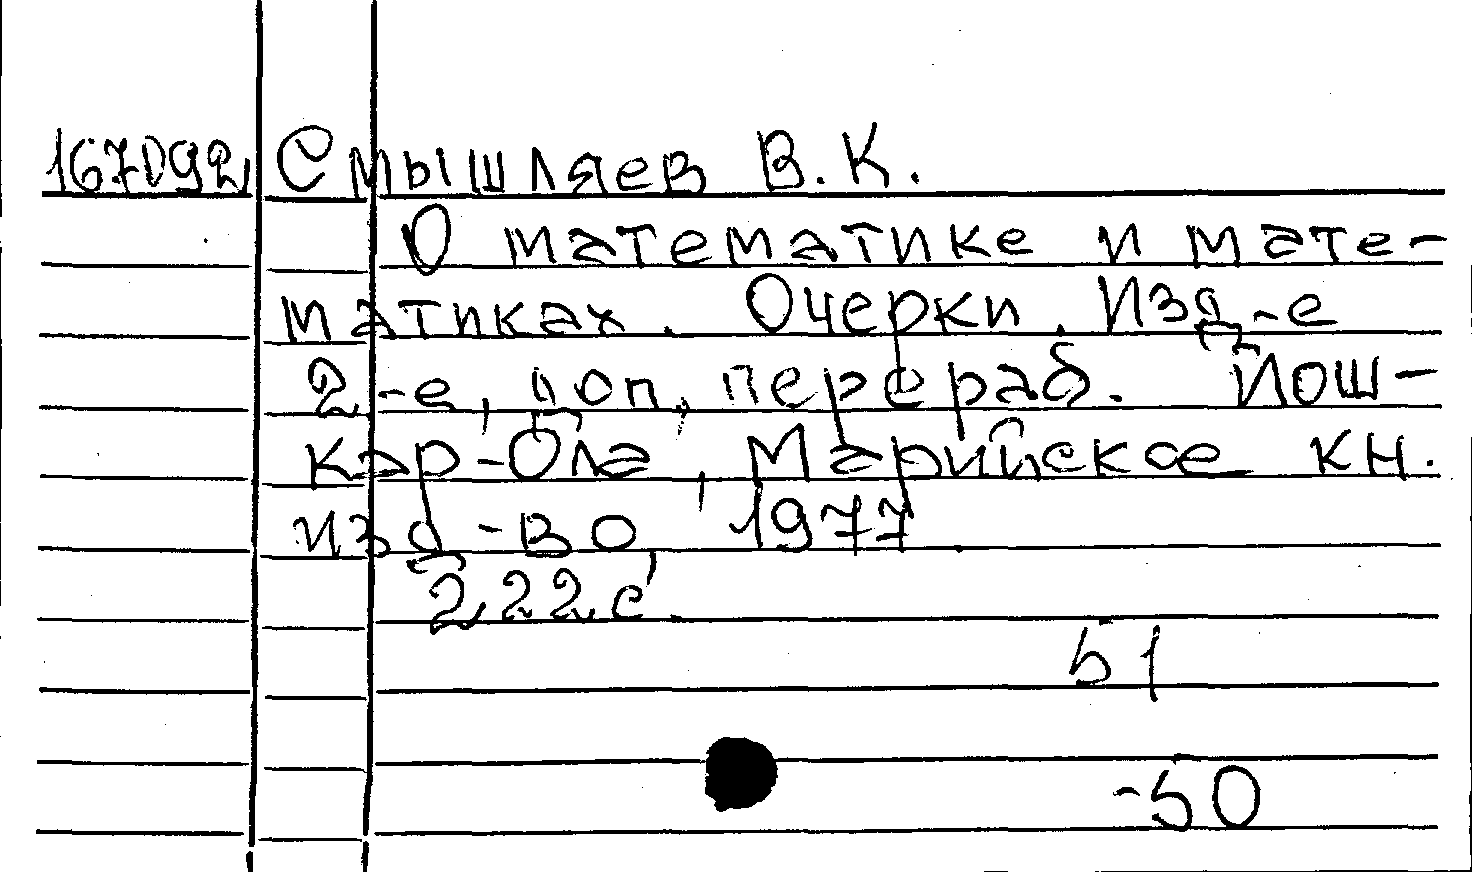 167092 Смышляев В.К.
О математике и мате-
матиках. Очерки. Изд-е
2-е, доп, перераб. Йош-
кар-Ола, Марийское кн.
изд-во, 1977
222с
51
-50